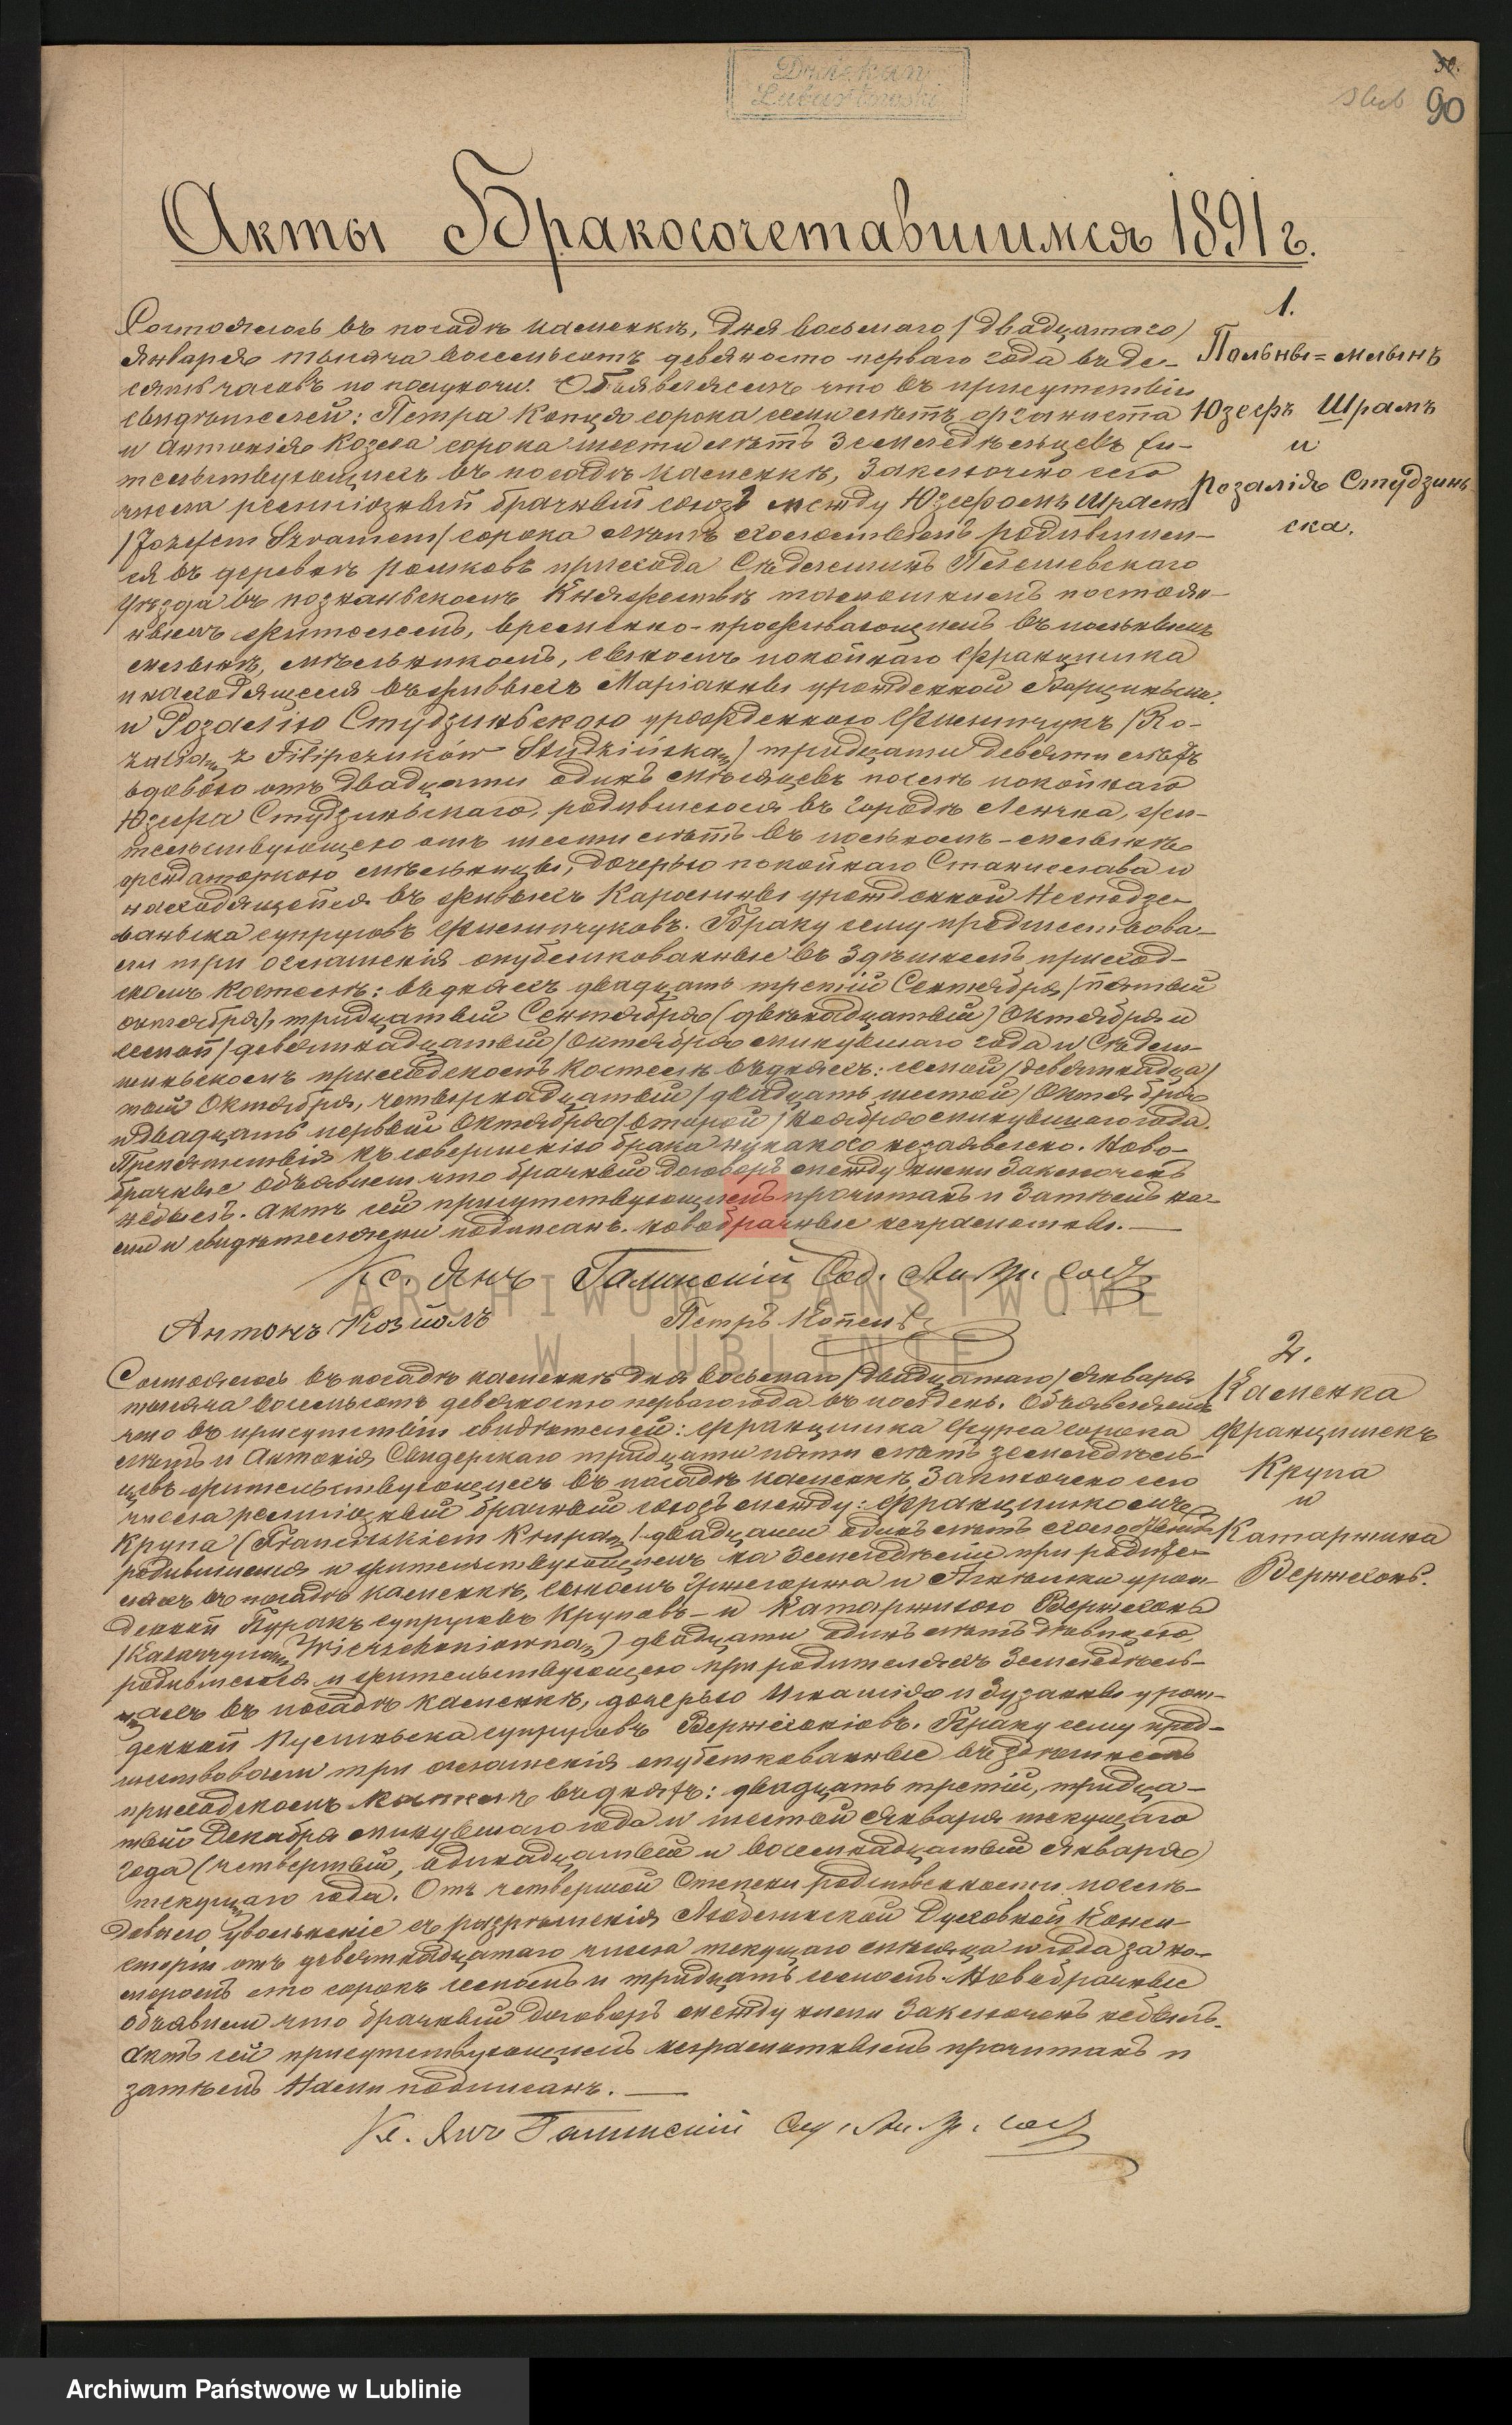 Dziekan
Lubartowski
ślub 90
Акты Бракосочетавшимся 1891 г.
1.
Польны=млынъ
Юзефъ Шрамъ
и
Розалія Студзинь
ска.
Состоялось въ посадѣ Каменкѣ, дня восьмаго /двадцатаго/
Января тысяча восемьсотъ девяносто перваго года въ де-
сять часовъ по полуночи. Объявляемъ что въ присутствіи
свидѣтелей: Петра Копця сорока семи лѣтъ органиста
и Антонія Козела сорока шести лѣтъ земледѣльцевъ жи-
тельствующихъ въ посадѣ Каменкѣ, заключено сего
числа религіозный брачный союзъ между Юзефомъ Шрамъ
/Józefem Szramem/ сорока лѣтъ холостымъ родившим-
ся въ деревнѣ прихода Плешевскаго
Уѣзда въ познаньскомъ Княжествѣ тамошнимъ постоян-
нымъ жителемъ, временно-проживающимъ въ польнымъ
млынѣ, мѣльникомъ, сыномъ покойнаго Францишка
и находящейся въ живыхъ Маріанны урожденной
и Розалію Студзиньскою урожденною Филипчукъ /Ro-
zalią z Filipczuków Studzińską/ тридцати девяти лѣтъ
вдовою отъ двадцати одинъ мѣсяцевъ послѣ покойнаго
Юзефа Студзиньскаго, родившеюся въ городѣ Ленчна, жи-
тельствующею отъ шести лѣтъ въ польномъ-млынѣ
арендаторкою мѣльницы, дочерью покойнаго Станислава и
находящейся въ живыхъ Каролины урожденной Несподзе-
ваньска супруговъ Филипчуковъ. Браку сему предшествова-
ли три оглашенія опубликованные въ здѣшнемъ приход-
скомъ костелѣ: въ дняхъ двадцать третій Сентября /пятый
октября/, тридцатый Сентября (двѣнадцатый) Октября и
седмой /девятнадцатый/ Октября минувшаго года и
приходскомъ костелѣ въ дняхъ: седмой /девятнадца/
тый Октября, четырнадцатый /двадцать шестой/ Октября
и двадцать первый Октября /второй/ Ноября минувшаго года.
Препятствія къ совершенію брака никакого не заявлено. Ново-
брачные объявили что брачный договоръ между ними заключенъ
небылъ. Актъ сей присутствующимъ прочитанъ и затѣмъ на-
ми и свидѣтелями подписанъ. новобрачные неграмотны.—
Кс. Янъ Галинскій
Антонъ Козиолъ Петръ Копецъ
2.
Каменка
Францишекъ
Крупа
и
Катаржина
Вержхонь.
Состоялось въ посадѣ Каменкѣ дня восьмаго /двадцатаго/ Января
тысяча восемьсотъ девяносто перваго года въ полдень. Объявляемъ
что въ присутствіи свидѣтелей: Францишка Фурга сорока
лѣтъ и Антонія Свидерскаго тридцати пяти лѣтъ земледѣль-
цевъ жительствующихъ въ посадѣ Каменкѣ, заключено сего
числа религіозный брачный союзъ между: Францишкомъ
Крупа (Franciszkiem Krupą) двадцати одинъ лѣтъ холостымъ
родившимся и жительствующимъ на земледѣліи при родите-
ляхъ въ посадѣ Каменкѣ, сыномъ Гржегоржа и Агнешки урож-
денной Пуракъ супруговъ Круповъ – и Катаржиною Вержхонь
/Katarzyną Wierzchoniowną/ двадцати одинъ лѣтъ дѣвицею,
родившеюся и жительствующею при родителяхъ земледѣль-
цахъ въ посадѣ Каменкѣ, дочерью Игнатія и Зузанны урож-
денной супруговъ Вержхоніовъ. Браку сему пред-
шествовали три оглашенія опубликованные въ здѣшнемъ
приходскомъ костелѣ въ дняхъ: двадцать третій, тридца-
тый Декабря минувшаго года и шестой Января текущаго
года (четвертый, одинадцатый и восемнадцатый Января)
текущаго года. Отъ четвертой степени родственности послѣ-
довало увольненіе съ разрѣшенія Люблинской Духовной Конси-
сторіи отъ девятнадцатаго числа текущаго мѣсяца и года за но-
меромъ сто сорокъ седмомъ и тридцать седмомъ. Новобрачные
объявили что брачный договоръ между ними заключенъ небылъ.
Актъ сей присутствующимъ неграмотнымъ прочитанъ и
затѣмъ Нами подписанъ.—
Кс. Янъ Галинскій
ARCHIWUM PAŃSTWOWE
W LUBLINIE
Archiwum Państwowe w Lublinie